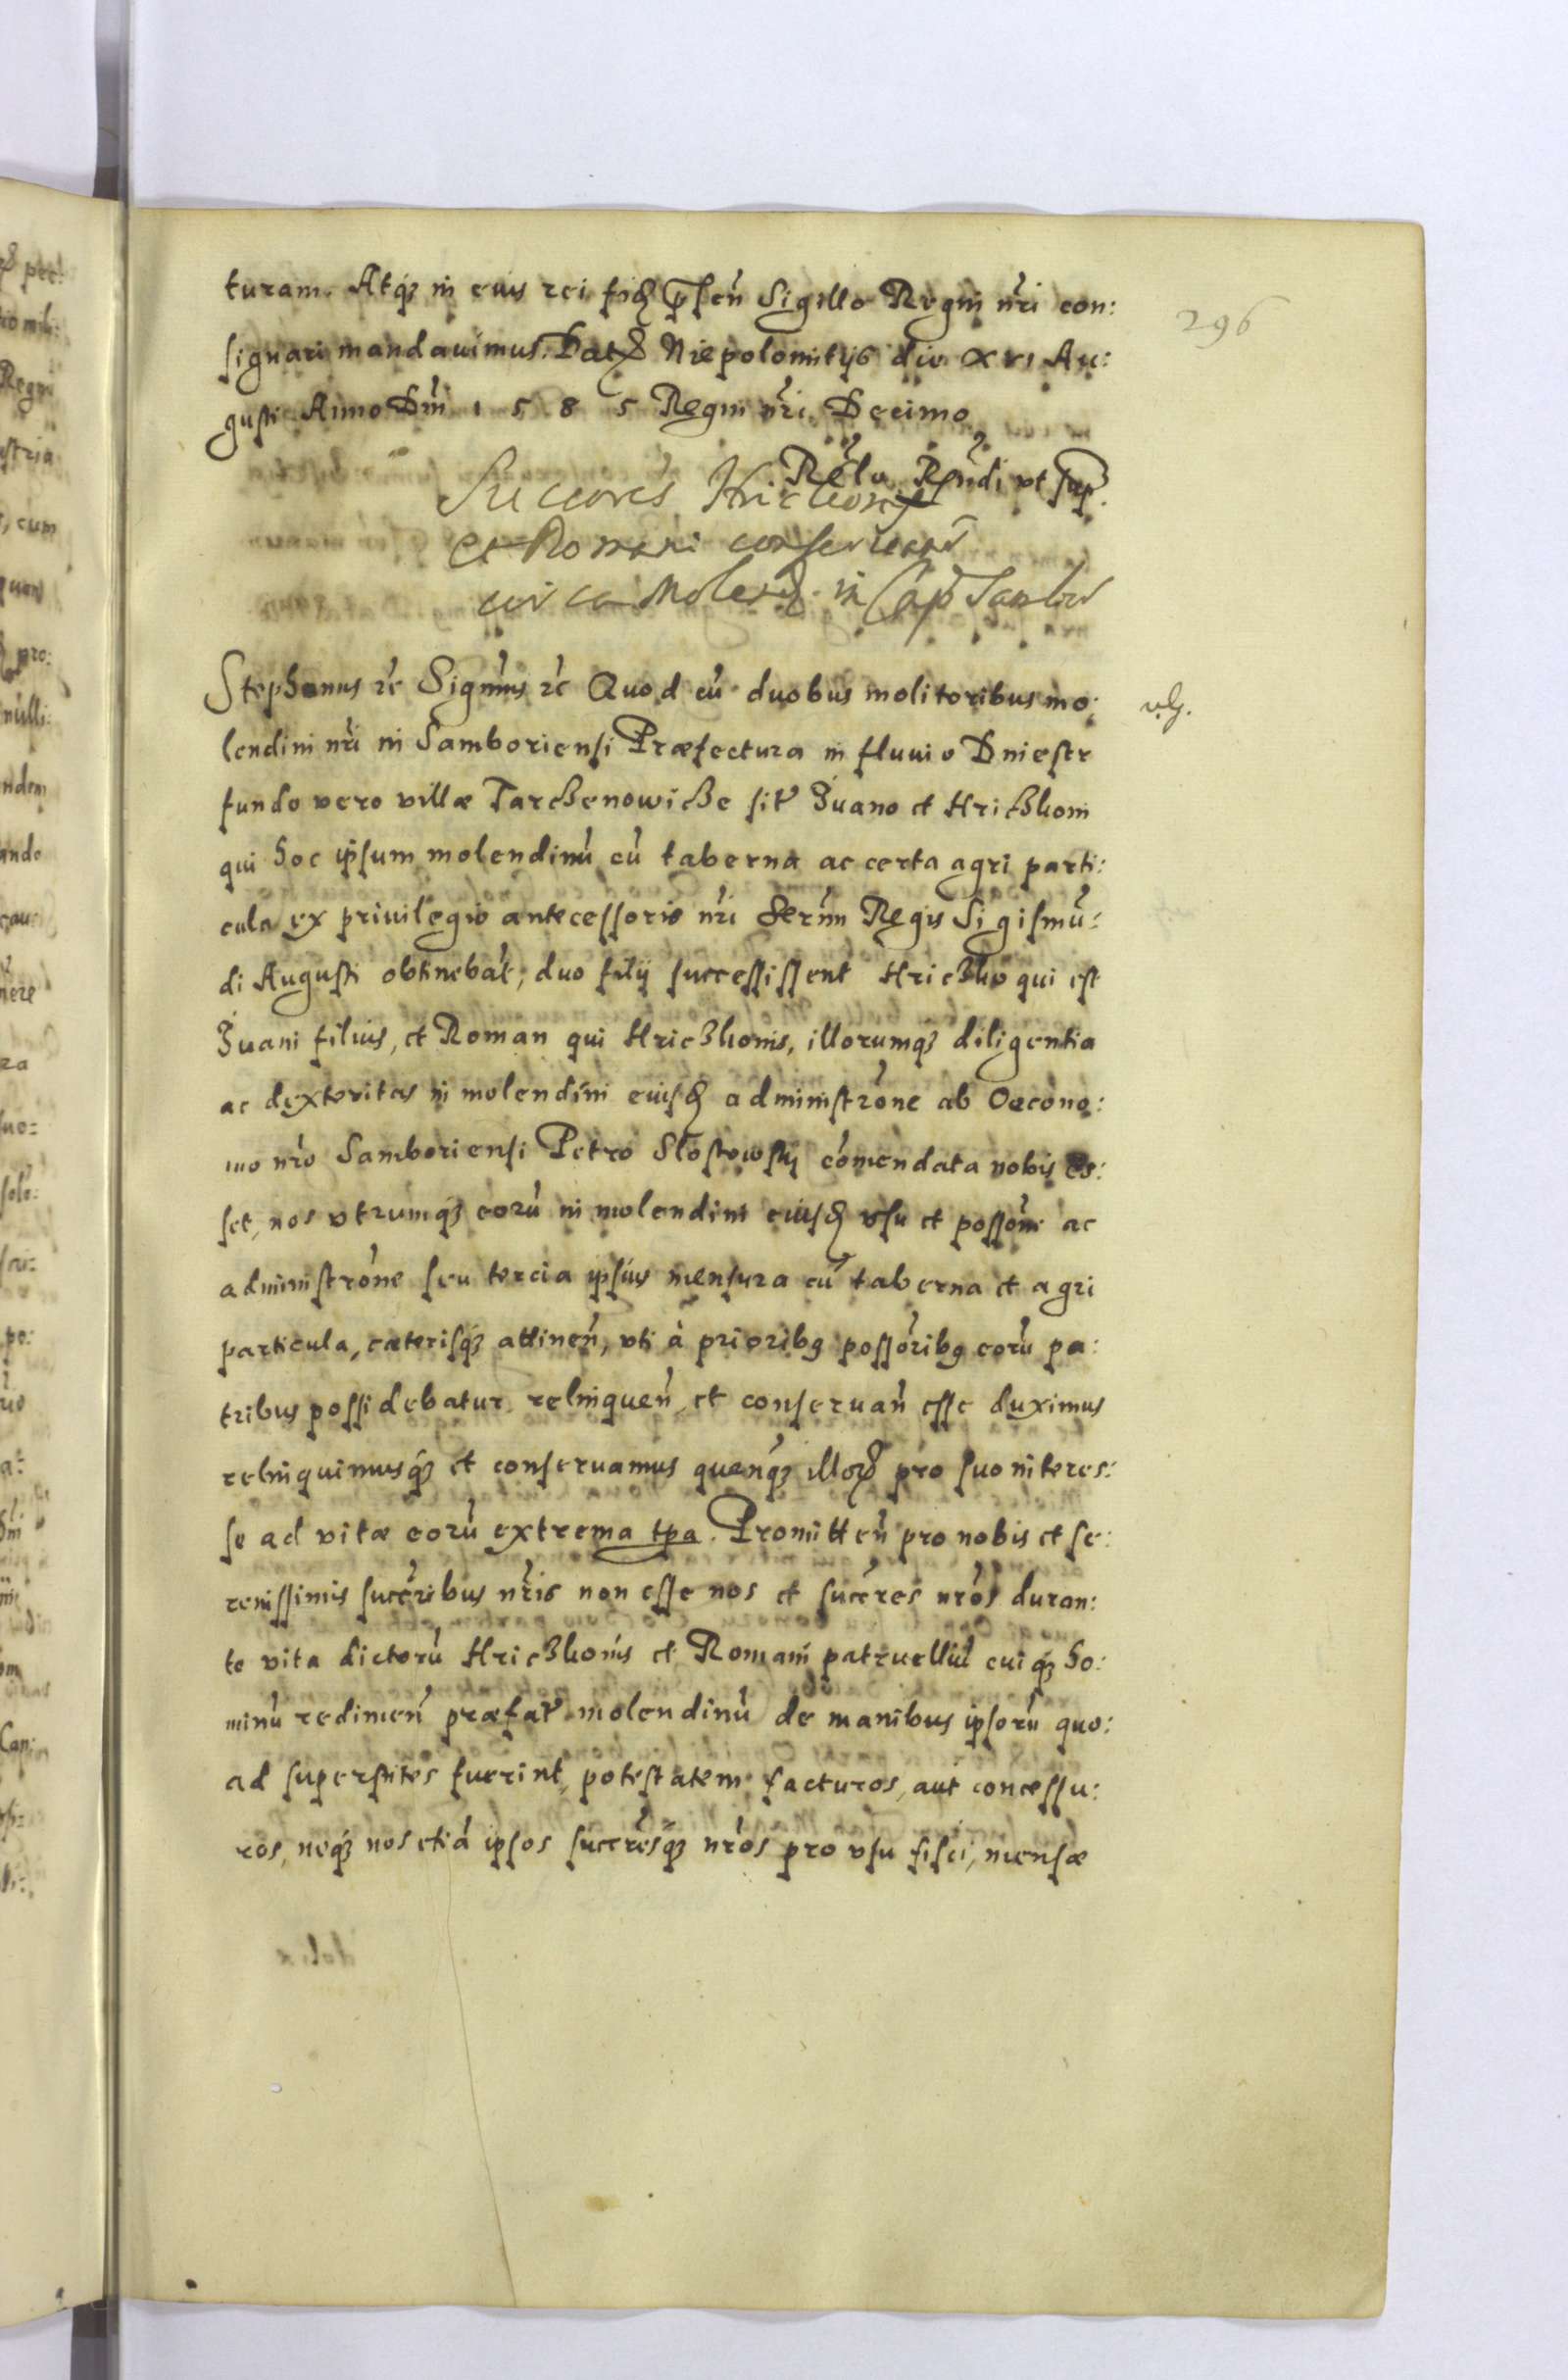 296
turam. Atq́ꝫ in euis rei fid̃ p̃sen̄ Sigillo Regni nr̃i con:
signari mandauimus. Dat̃ Niepolomitijs die XVI Au:
gusti Anno Dm̃ 1 5 8 5 Regni nr̃i Decimo
Rẽlo Rñdi vt sup.
Succores Hriczkonis
et Romani conseruant
circa Molend̃ in Cap Sambor
Stephanus ꝛc̃ Signm̃us ꝛc̃ Quod cũ duobus molitoribus mo:
lendini nr̃i in Samboriensi Præfectura in fluuio Dniestr
fundo vero villæ Tarchenowicze sit̃ Iuano et Hriczkoni
qui hoc ipsum molendinũ cũ taberna ac certa agri parti:
cula ex priuilegio antecessoris nr̃i Serm̃i Regis Sigismũ:
di Augusti obtinebãt, duo filij successissent Hriczko qui est
Iuani filius, et Roman qui Hriczkonis, illorumq́ꝫ diligentia
ac dexteritas in molendini euisd̃ administrõne ab Oecono:
mo nr̃o Samboriensi Petro Slostowskij cõmendata nobis es:
set, nos vtrumq́ꝫ eorũ in molendini eiusd̃ vsu et possõne ac
administrõne seu tercia ipsius mensura cũ taberna et agri
particula, cæterisq́ꝫ attinen̄, vti à prioribꝫ possõribꝫ eorũ pa:
tribus possidebatur relinquen̄ et conseruan̄ esse duximus
relinquimusq́ꝫ et conseruamus quenq́ꝫ illoꝝ pro suo interes:
se ad vitæ eorũ extrema tpa. Promitten̄ pro nobis et se:
renissimis succr̃ibus nr̃is non esse nos et succr̃es nr̃os duran:
te vita dictorũ Hriczkonis et Romani patruelliũ cuiq́ꝫ ho:
minũ redimen̄ præfat̃ molendinũ de manibus ipsorũ quo:
ad superstites fuerint, potestatem facturos, aut concessu:
ros, neq́ꝫ nos etiã ipsos succr̃esq́ꝫ nr̃os pro vsu fisci, mensæ